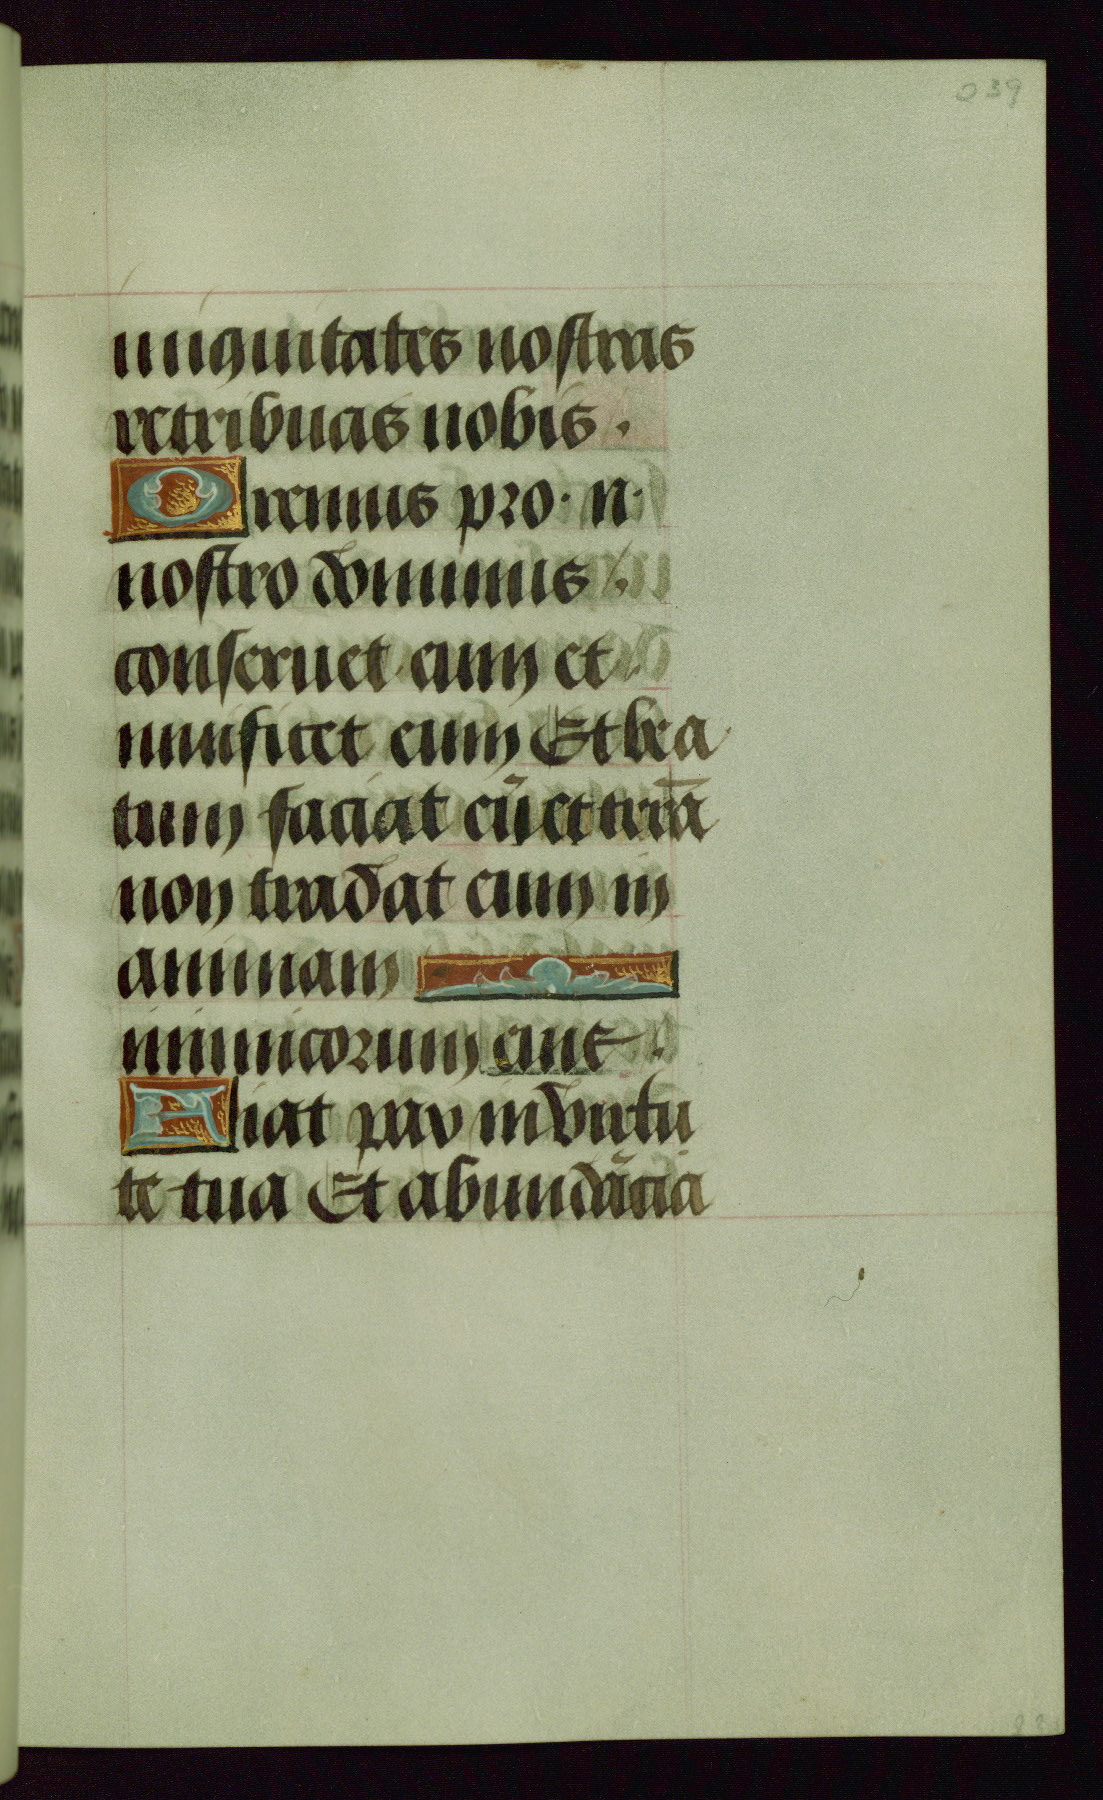 039
iniquitates nostras
retribuas nobis.
Oremus pro. n.
nostro dominus /.
conseruet eum et.
uiuificet eum Et bea
tum faciat eũ et terrã
non tradat eum in
animam
inimicorum eius.
Fiat pax in virtu
te tua Et abundãcia